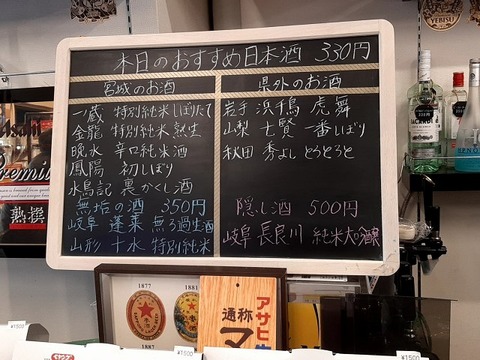 本日のおすすめ日本酒 330円
宮城のお酒
一蔵 特別純米しぼりたて
金龍 特別純米 無生
暁水 辛口純米酒
鳳陽 初しぼり
水鳥記 裏かくし酒
無垢の酒 350円
岐阜 蓬莱 無ろ過生酒
山形 十水 特別純米
県外のお酒
岩手 浜千鳥 虎舞
山梨 七賢 一番しぼり
秋田 秀よし とろとろと
隠し酒 500円
岐阜 長良川 純米大吟醸
YEBISU
熱撰
1877
1881
1887
アサヒ
通称
マ
¥1500
¥1500
¥1500